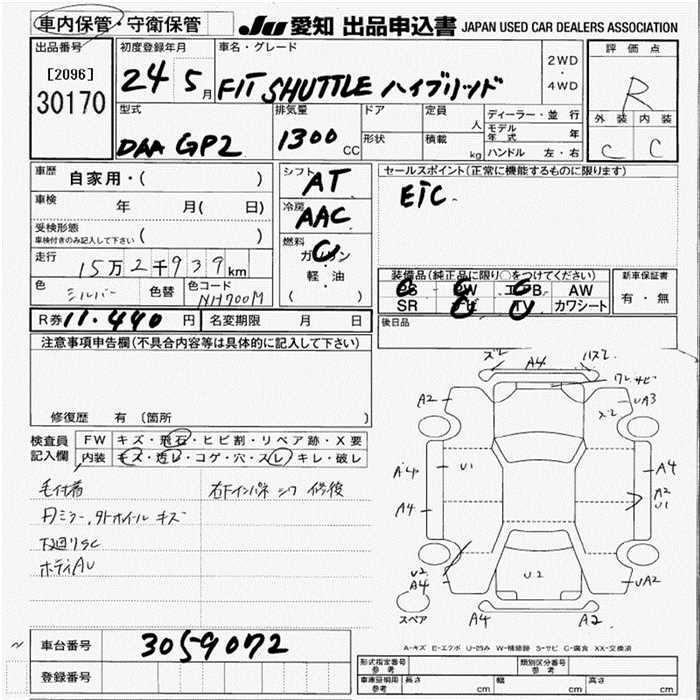 車内保管・守衛保管 JU 愛知 出品申込書 JAPAN USED CAR DEALERS ASSOCIATION
出品番号 初度登録年月 車名・グレード 評価点
[2096] 24 5月 FIT SHUTTLE ハイブリッド 2WD・4WD R
30170 型式 排気量 ドア 定員 人 ディーラー・並行 外装 内装
DAA GP2 1300 CC 形状 積載 kg モデル年式 年 C C
ハンドル 左・右
車歴 自家用・( ) シフト AT セールスポイント(正常に機能するものに限ります)
車検 年 月( 日) 冷房 AAC EtC.
受検形態 ( )
車検付きのみ記入して下さい
燃料 ガソリン
軽・油
( )
走行 15万2千939km
色 シルバー 色替 色コード NH700M
装備品(純正品に限り○をつけてください) 新車保証書
PS PW エアB AW 有・無
SR ナビ TV カワシート
R券 11.440 円 名変期限 月 日 後日品
注意事項申告欄(不具合内容等は具体的に記入して下さい)
修復歴 有 (箇所
検査員記入欄 FW キズ・飛石・ヒビ割・リペア跡・X要
内装 キズ・汚レ・コゲ・穴・スレ・キレ・破レ
毛付着 右下インパネ シワ 修復
下廻りSC
ボディAU
ズレ A4 ハズレ
ワレ サビ
A2 UA3
ズレ
A4 U1 A4
A4 A2
U1
U2
A4 U2 UA2
スペア A4 A2
車台番号 3059072
登録番号
A-キズ E-エクボ U-凹み W-補修跡 S-サビ C-腐食 XX-交換済
形式指定番号 参考 類別区分番号 参考
車庫証明用 参考 長さ cm 幅 cm 高さ cm